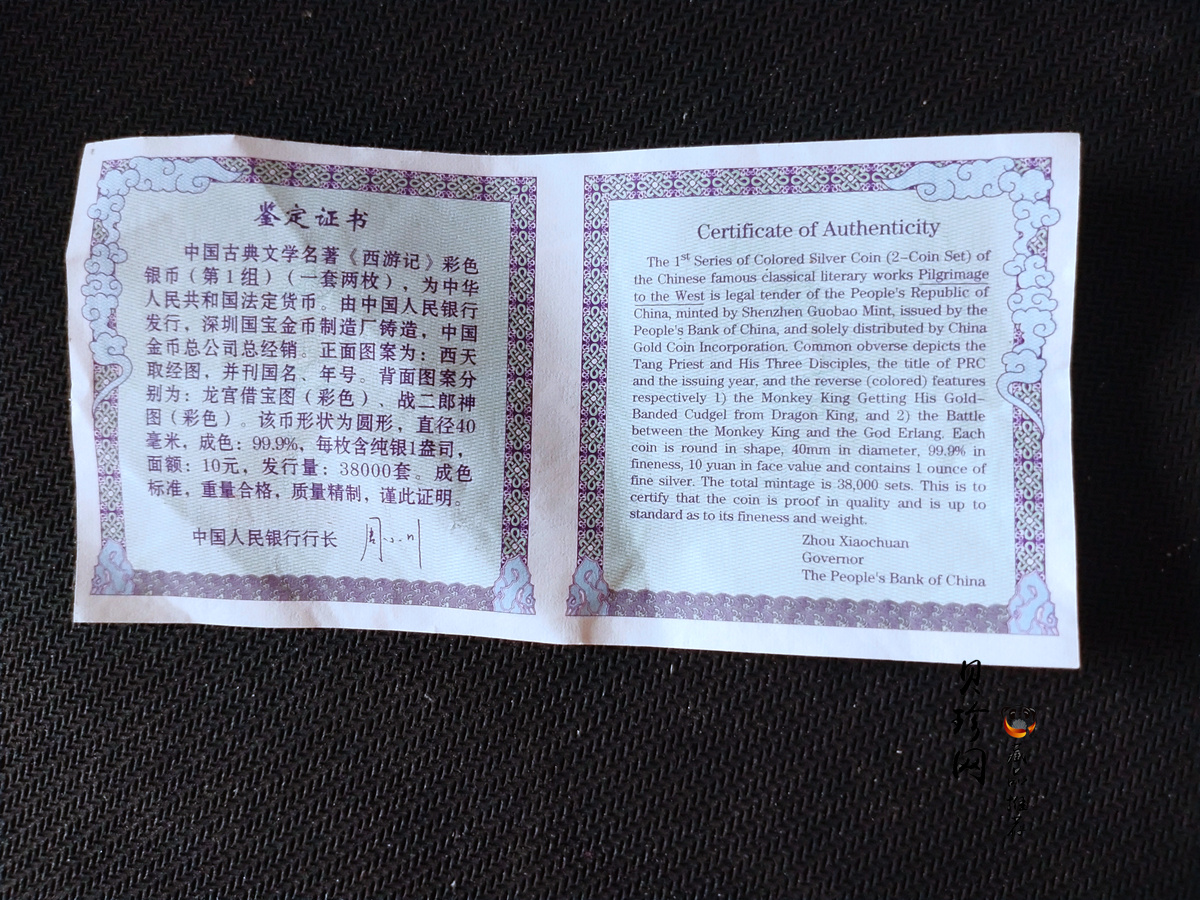 鉴定证书
中国古典文学名著《西游记》彩色
银币（第1组）（一套两枚），为中华
人民共和国法定货币。由中国人民银行
发行，深圳国宝金币制造厂铸造，中国
金币总公司总经销。正面图案为：西天
取经图，并刊国名、年号。背面图案分
别为：龙宫借宝图（彩色）、战二郎神
图（彩色）。该币形状为圆形，直径40
毫米，成色：99.9%，每枚含纯银1盎司，
面额：10元，发行量：38000套。成色
标准，重量合格，质量精制，谨此证明。
中国人民银行行长 周小川
Certificate of Authenticity
The 1st Series of Colored Silver Coin (2-Coin Set) of
the Chinese famous classical literary works Pilgrimage
to the West is legal tender of the People's Republic of
China, minted by Shenzhen Guobao Mint, issued by the
People's Bank of China, and solely distributed by China
Gold Coin Incorporation. Common obverse depicts the
Tang Priest and His Three Disciples, the title of PRC
and the issuing year, and the reverse (colored) features
respectively 1) the Monkey King Getting His Gold-
Banded Cudgel from Dragon King, and 2) the Battle
between the Monkey King and the God Erlang. Each
coin is round in shape, 40mm in diameter, 99.9% in
fineness, 10 yuan in face value and contains 1 ounce of
fine silver. The total mintage is 38,000 sets. This is to
certify that the coin is proof in quality and is up to
standard as to its fineness and weight.
Zhou Xiaochuan
Governor
The People's Bank of China
贝珍网